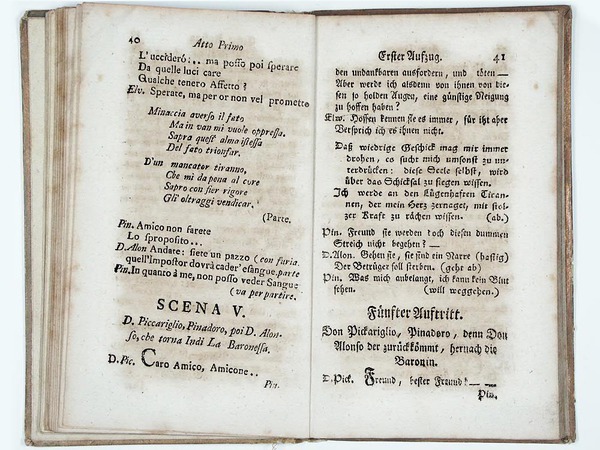 40 Atto Primo
L'ucciderò:.. ma posso poi sperare
Da quelle luci care
Qualche tenero Affetto?
Elv. Sperate, ma per or non vel prometto
Minaccia averso il fato
Ma in van mi vuole oppressa.
Sapra quest' alma istessa
Del fato trionfar.
D'un mancator tiranno,
Che mi da pena al core
Sapro con fier rigore
Gli oltraggi vendicar.
(Parte.
Pin. Amico non farete
Lo sproposito...
D.Alon Andate: siete un pazzo (con furia.
quell'Impostor dovrà cader' esangue. parte
Pin. In quanto à me, non posso veder Sangue
(va per partire.
SCENA V.
D. Piccariglio, Pinadoro, poi D. Alon-
so, che torna Indi La Baronessa.
D. Pic. Caro Amico, Amicone..
Pin.
Erster Aufzug. 41
den undankbaren ausfordern, und töten —
Aber werde ich alsdenn von ihnen von die-
sen so holden Augen, eine günstige Neigung
zu hoffen haben?
Elw. Hoffen kennen sie es immer, für iht aber
Versprich ich es ihnen nicht.
Daß wiedrige Geschick mag mit immer
drohen, es sucht mich umsonst zu un-
terdrücken: diese Seele selbst, wird
über das Schicksal zu siegen wissen.
Ich werde an den Lügenhaften Tiran-
nen, der mein Herz zernaget, mit stol-
zer Kraft zu rächen wissen. (ab.)
Pin. Freund sie werden doch diesen dummen
Streich nicht begehen? —
D. Alon. Gehen sie, sie sind ein Narre (hastig)
Der Betrüger soll sterben. (geht ab)
Pin. Was mich anbelangt, ich kann kein Blut
sehen. (will weggehen.)
Fünfter Auftritt.
Don Pickariglio, Pinadoro, denn Don
Alonso der zurückkömmt, hernach die
Baronin.
D. Pick. Freund, bester Freund! — —
Pin.